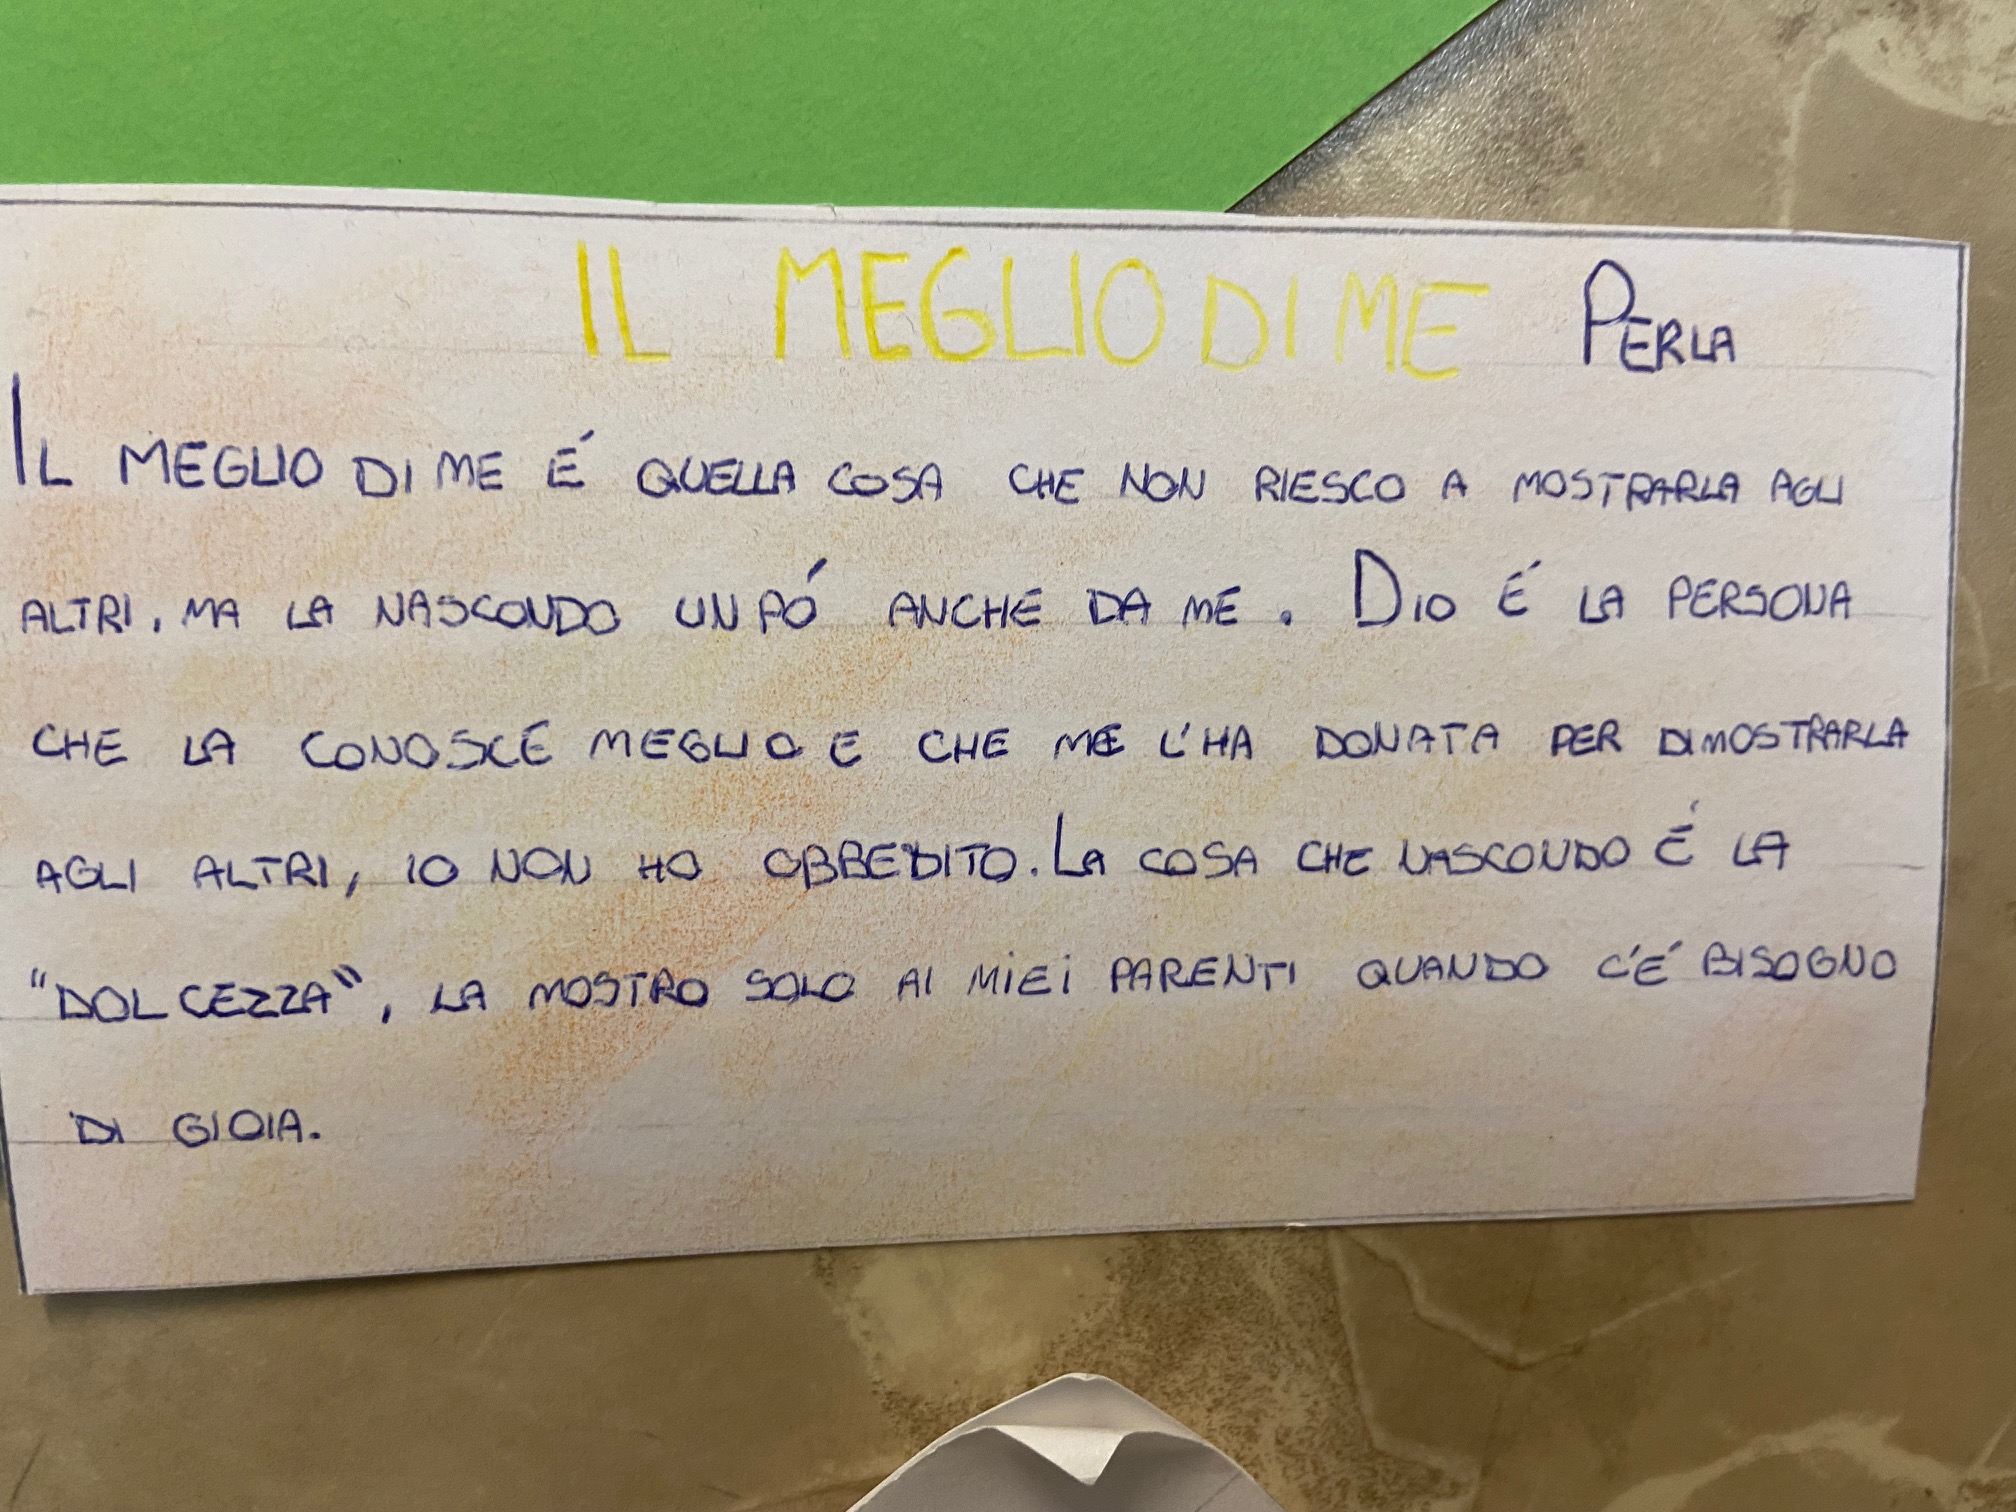 IL MEGLIO DI ME PERLA
IL MEGLIO DI ME É QUELLA COSA CHE NON RIESCO A MOSTRARLA AGLI
ALTRI, MA LA NASCONDO UN PÓ ANCHE DA ME. DIO É LA PERSONA
CHE LA CONOSCE MEGLIO E CHE ME L'HA DONATA PER DIMOSTRARLA
AGLI ALTRI, IO NON HO OBBEDITO. LA COSA CHE NASCONDO É LA
"DOLCEZZA", LA MOSTRO SOLO AI MIEI PARENTI QUANDO C'É BISOGNO
DI GIOIA.